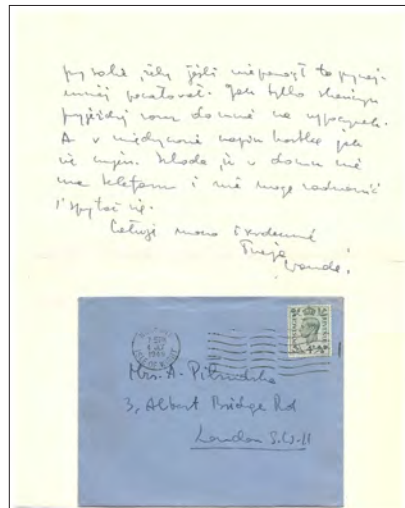 przy sobie, żeby jeśli nie pomógł to przynaj-
mniej pocałował. Jak tylko skończysz
przyjeżdżaj do mnie na wypoczynek.
A v międzyczasie napisz kartkę jak
się czujesz. Szkoda, że v domu nie
ma telefonu i nie mogę zadzwonić
i spytać się.
Całuję mocno i serdecznie
Twoja
Wanda.
ISLE OF WIGHT
Mrs. A. Piłsudska
3, Albert Bridge Rd
London S.W.11